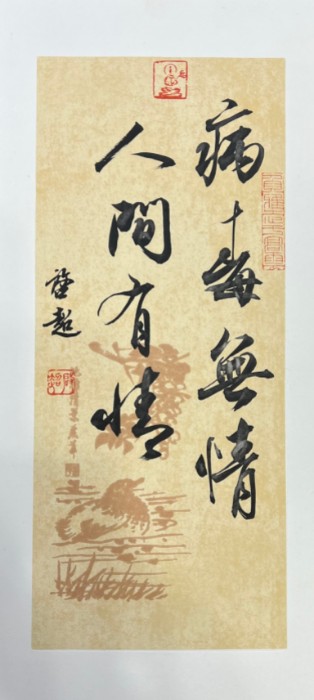 病毒無情
人間有情
超